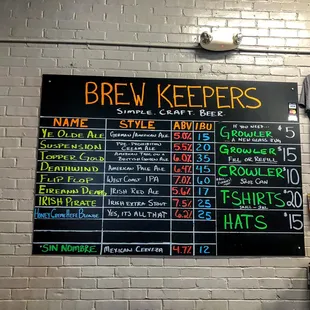 BREW KEEPERS
SIMPLE. CRAFT. BEER
NAME STYLE ABV IBU
YE OLDE ALE GERMAN/AMERICAN ALE 5.0% 15
SUSPENSION PRE-PROHIBITION CREAM ALE 5.5% 20
TOPPER GOLD AMERICAN TAKE ON A BRITISH GOLDEN ALE 6.0% 35
DEATHWIND AMERICAN PALE ALE 6.4% 45
FLIP FLOP WEST COAST IPA 7.0% 60
EIREANN DEARG IRISH RED ALE 5.6% 17
IRISH PIRATE IRISH EXTRA STOUT 7.5% 25
HONEY BLONDE YES, IT'S ALL THAT 6.2% 25
*SIN NOMBRE MEXICAN CERVEZA 4.7% 12
IF YOU NEED
GROWLER $5
A NEW GLASS
GROWLER $15
FILL OR REFILL
CROWLER $10
T-SHIRTS $20
HATS $15